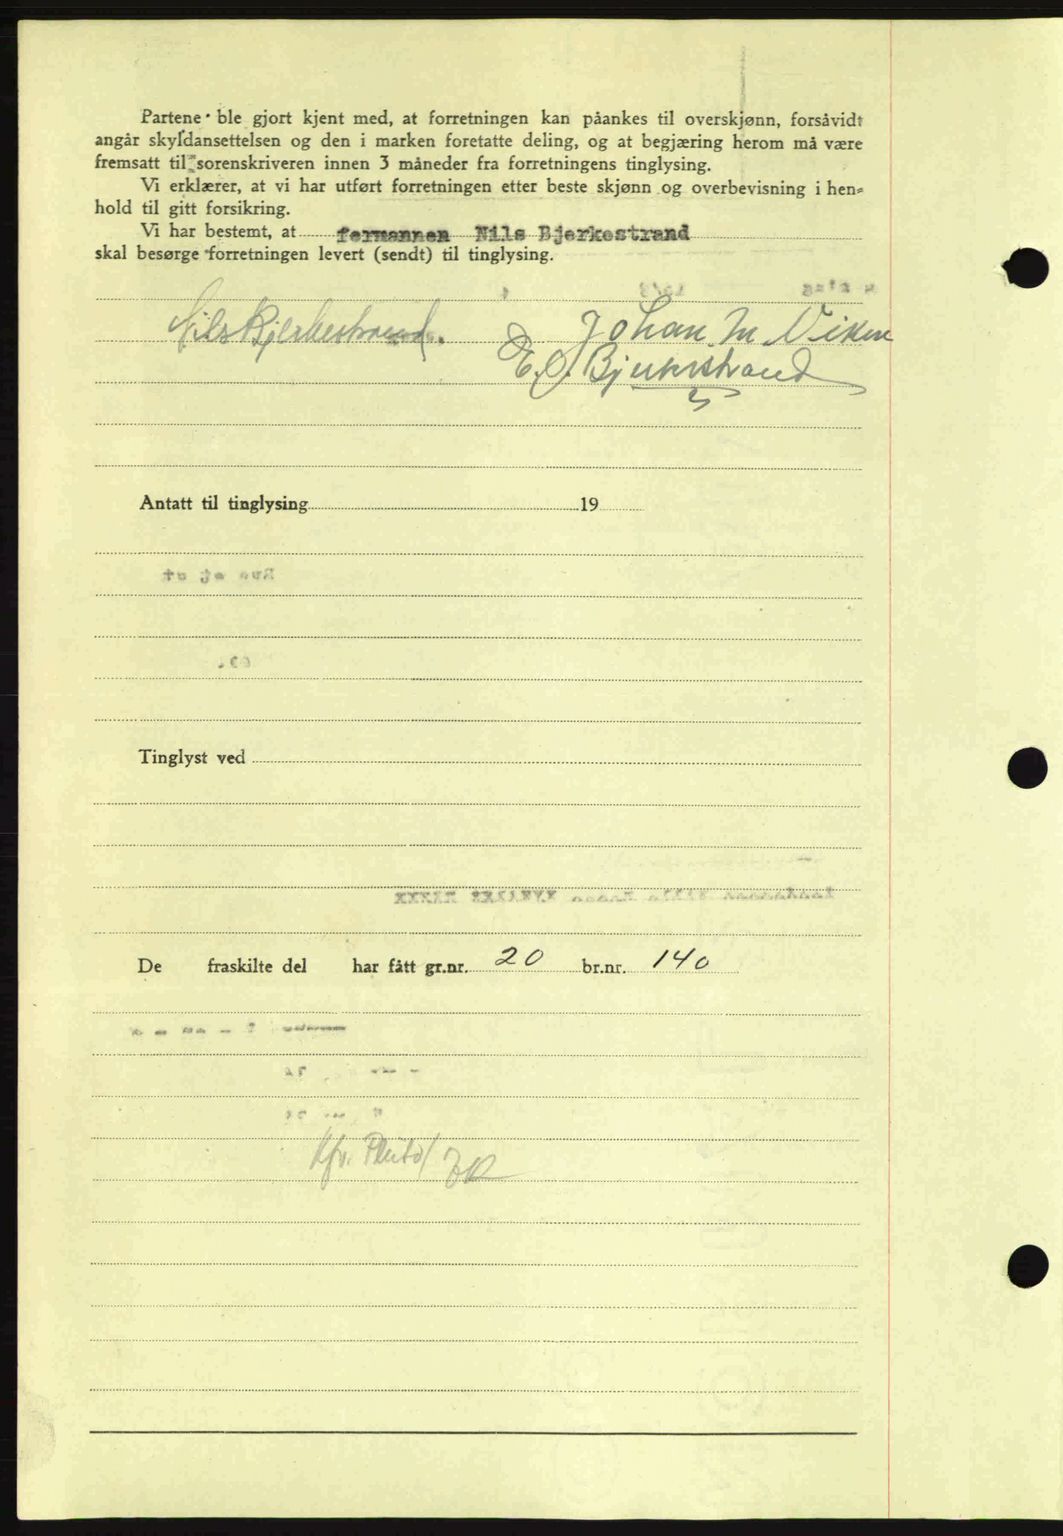 Partene ble gjort kjent med, at forretningen kan påankes til overskjønn, forsåvidt
angår skyldansettelsen og den i marken foretatte deling, og at begjæring herom må være
fremsatt til sorenskriveren innen 3 måneder fra forretningens tinglysing.
Vi erklærer, at vi har utført forretningen etter beste skjønn og overbevisning i hen=
hold til gitt forsikring.
Vi har bestemt, at formannen Nils Bjerkestrand
skal besørge forretningen levert (sendt) til tinglysing.
Nils Bjerkestrand. Johan M Viken
E. O. Bjerkestrand
Antatt til tinglysing 19
Tinglyst ved
De fraskilte del har fått gr.nr. 20 br.nr. 140
Kfr.